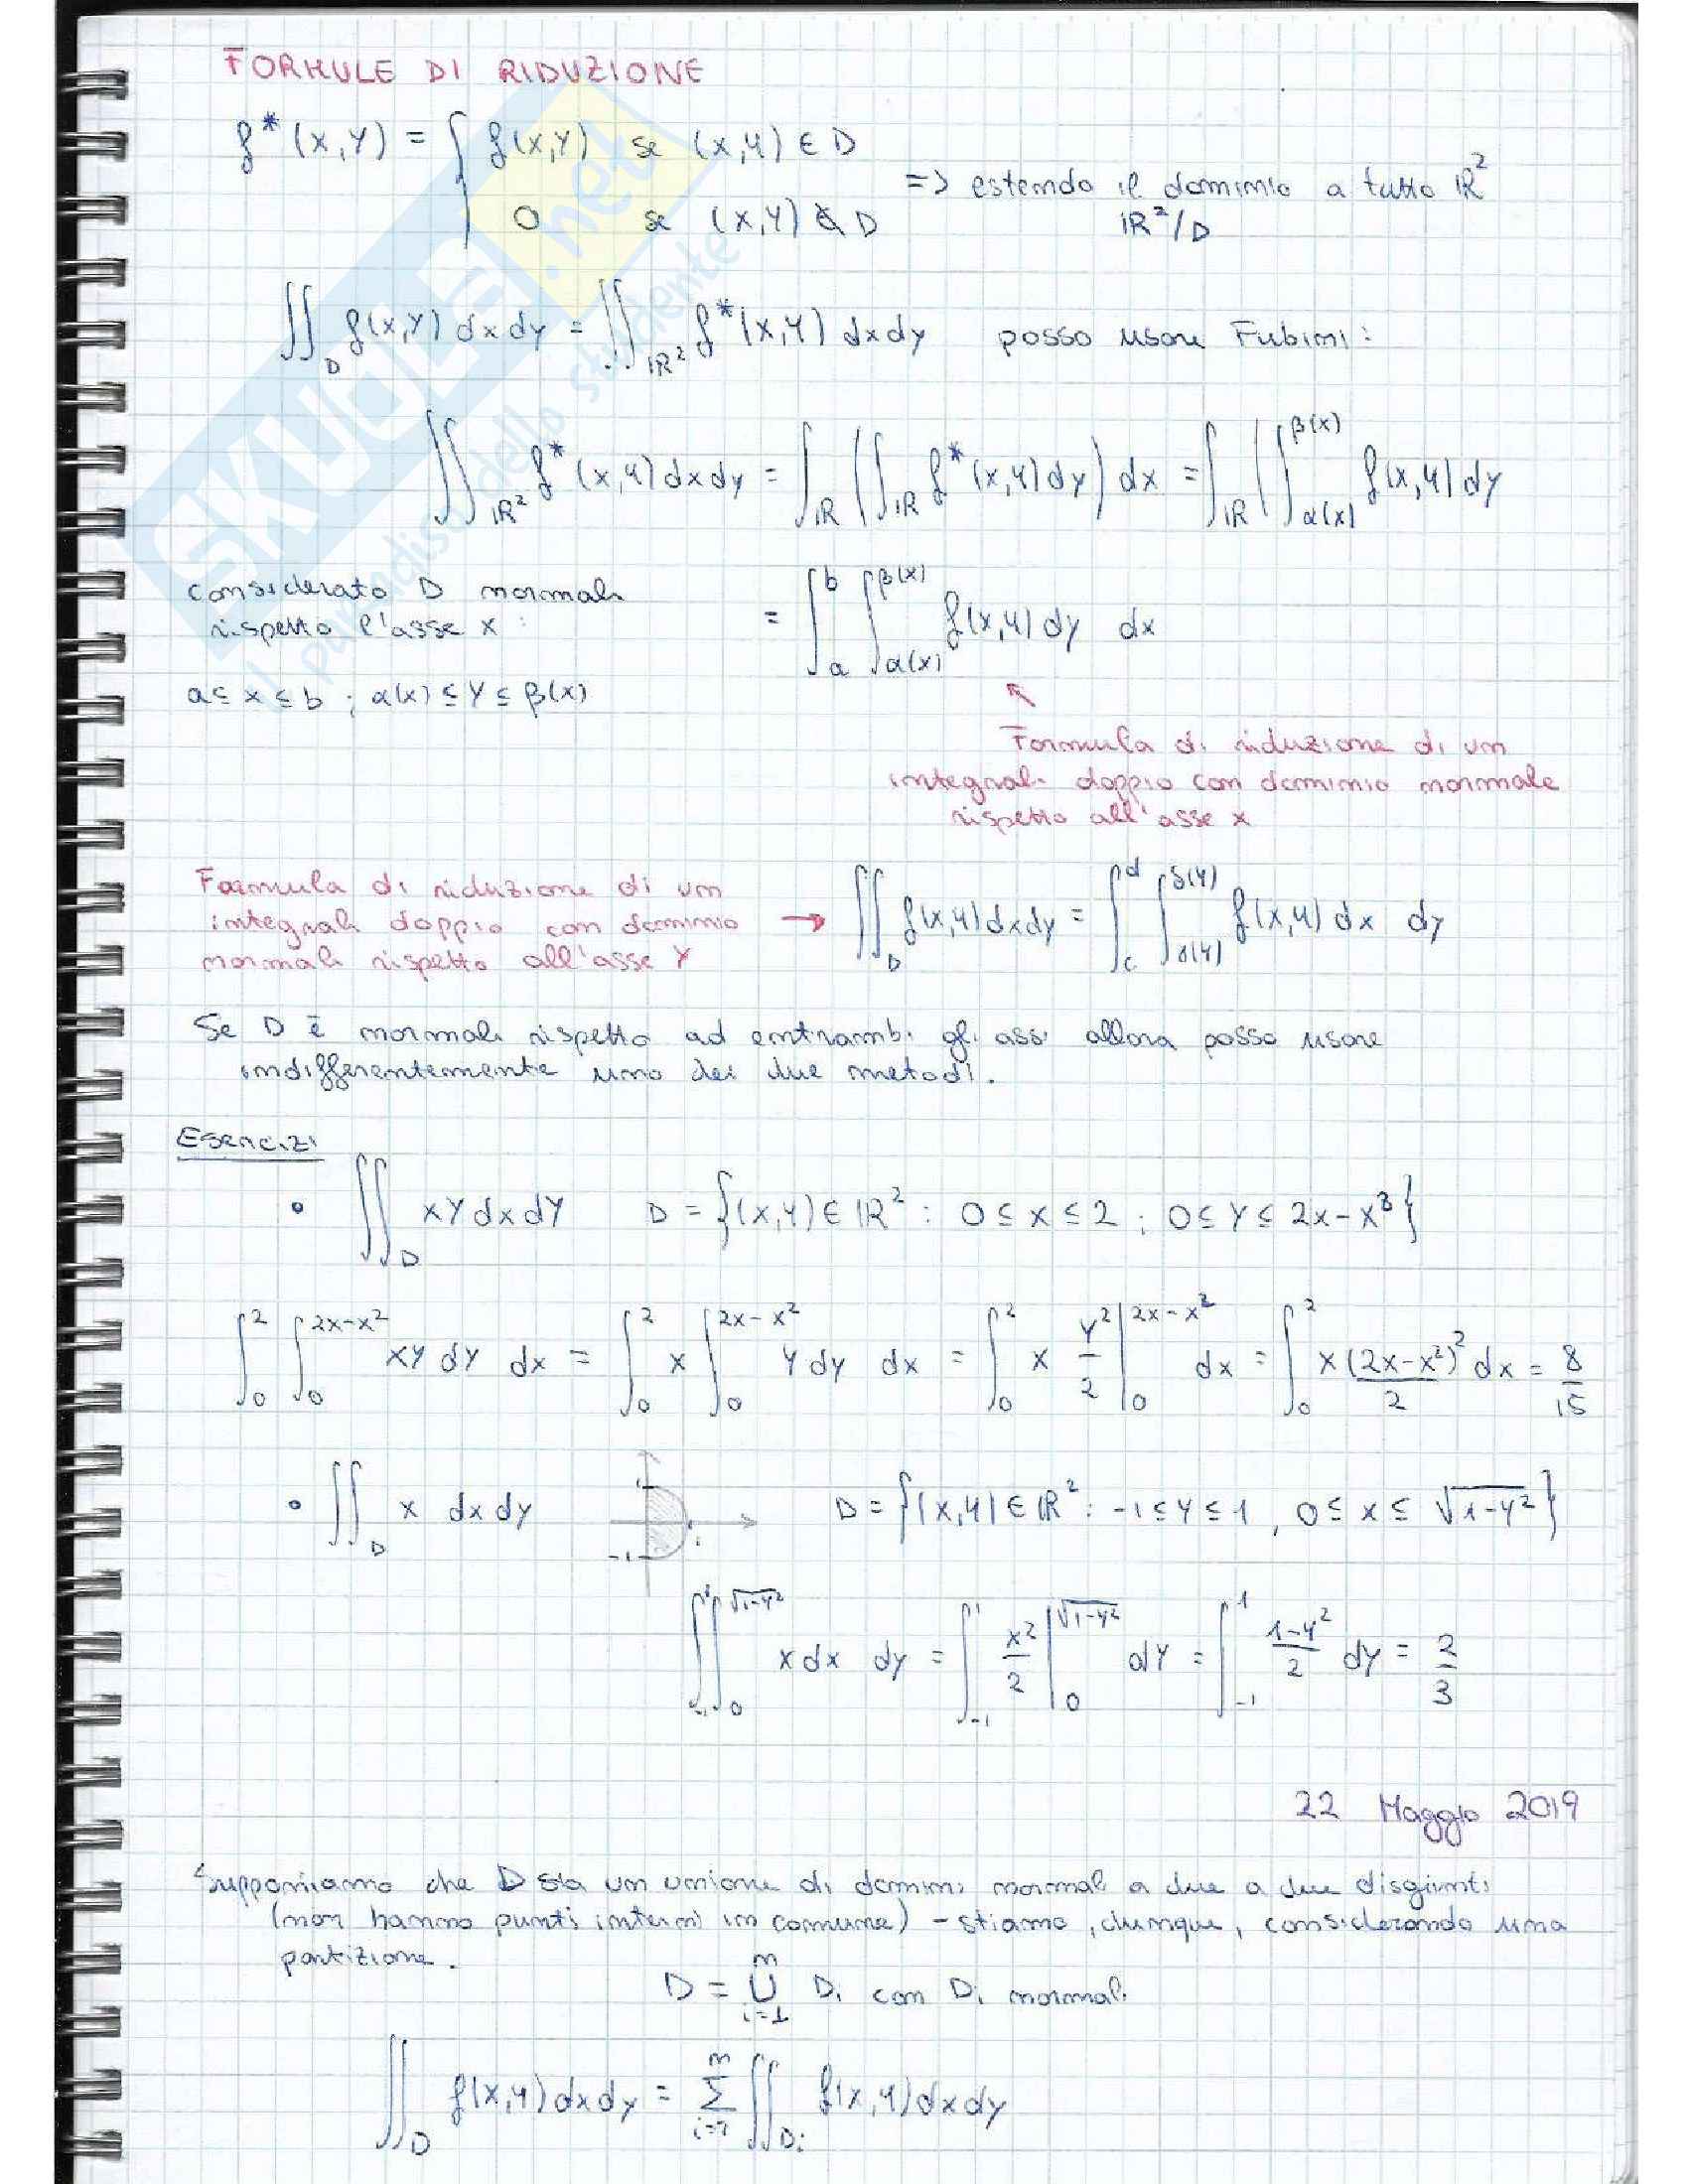 FORMULE DI RIDUZIONE
f*(x,y) = { f(x,y) se (x,y) ∈ D
0 se (x,y) ∉ D
=> estendo il dominio a tutto ℝ²
ℝ²/D
∬_D f(x,y) dxdy = ∬_ℝ² f*(x,y) dxdy posso usare Fubini:
∬_ℝ² f*(x,y) dxdy = ∫_ℝ (∫_ℝ f*(x,y) dy) dx = ∫_ℝ (∫_α(x)^β(x) f(x,y) dy
considerato D normale
rispetto l'asse x :
= ∫_a^b ∫_α(x)^β(x) f(x,y) dy dx
a ≤ x ≤ b ; α(x) ≤ y ≤ β(x)
Formula di riduzione di un
integrale doppio con dominio normale
rispetto all'asse x
Formula di riduzione di un
integrale doppio con dominio
normale rispetto all'asse Y
→ ∬_D f(x,y) dxdy = ∫_c^d ∫_γ(y)^δ(y) f(x,y) dx dy
Se D è normale rispetto ad entrambi gli assi allora posso usare
indifferentemente uno dei due metodi.
Esercizi
• ∬_D xy dxdy D = {(x,y) ∈ ℝ² : 0 ≤ x ≤ 2 ; 0 ≤ y ≤ 2x-x²}
∫_0^2 ∫_0^{2x-x²} xy dy dx = ∫_0^2 x ∫_0^{2x-x²} y dy dx = ∫_0^2 x y²/2 |_0^{2x-x²} dx = ∫_0^2 x(2x-x²)²/2 dx = 8/15
• ∬_D x dxdy D = {(x,y) ∈ ℝ² : -1 ≤ y ≤ 1 , 0 ≤ x ≤ √(1-y²)}
1
-1
1
∫_-1^1 ∫_0^√(1-y²) x dx dy = ∫_-1^1 x²/2 |_0^√(1-y²) dy = ∫_-1^1 (1-y²)/2 dy = 2/3
22 Maggio 2019
Supponiamo che D sia un unione di domini normali a due a due disgiunti
(non hanno punti interni in comune) - stiamo, dunque, considerando una
partizione.
D = ⋃_{i=1}^n Di con Di normali
∬_D f(x,y) dxdy = Σ_{i=1}^n ∬_Di f(x,y) dxdy
SKUOLA.net
il paradiso dello studente